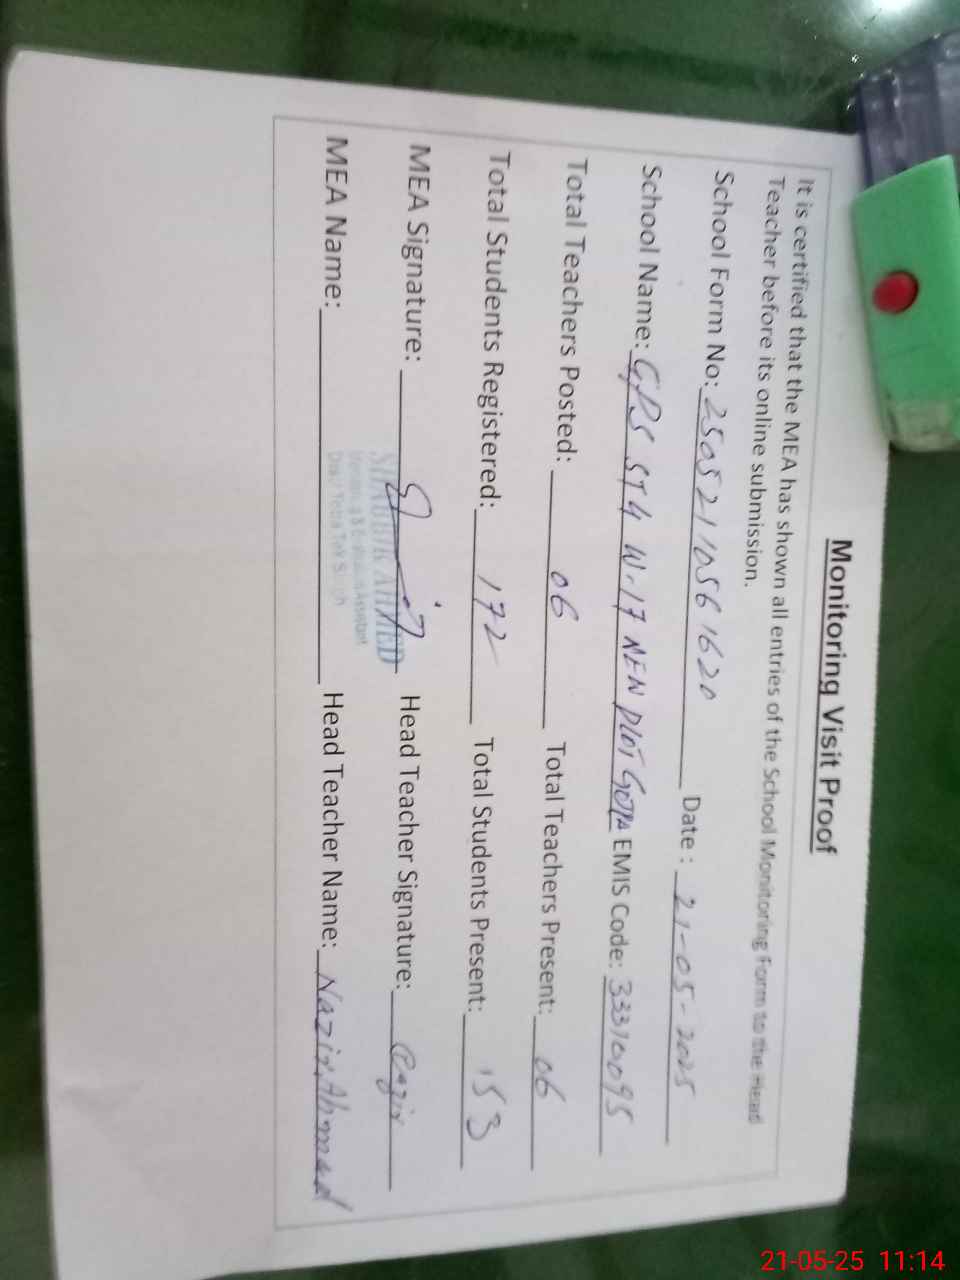 Monitoring Visit Proof
It is certified that the MEA has shown all entries of the School Monitoring Form to the Head
Teacher before its online submission.
School Form No: 25052110561620 Date : 21-05-2025
School Name: GPS ST4 W-17 NEW PLOT GOJRA EMIS Code: 33310095
Total Teachers Posted: 06 Total Teachers Present: 06
Total Students Registered: 172 Total Students Present: 153
MEA Signature: Head Teacher Signature: Nazir
SHABBIR AHMED
Monitoring & Evaluation Assistant
Distt Toba Tek Singh
MEA Name: Head Teacher Name: Nazir Ahmad
21-05-25 11:14